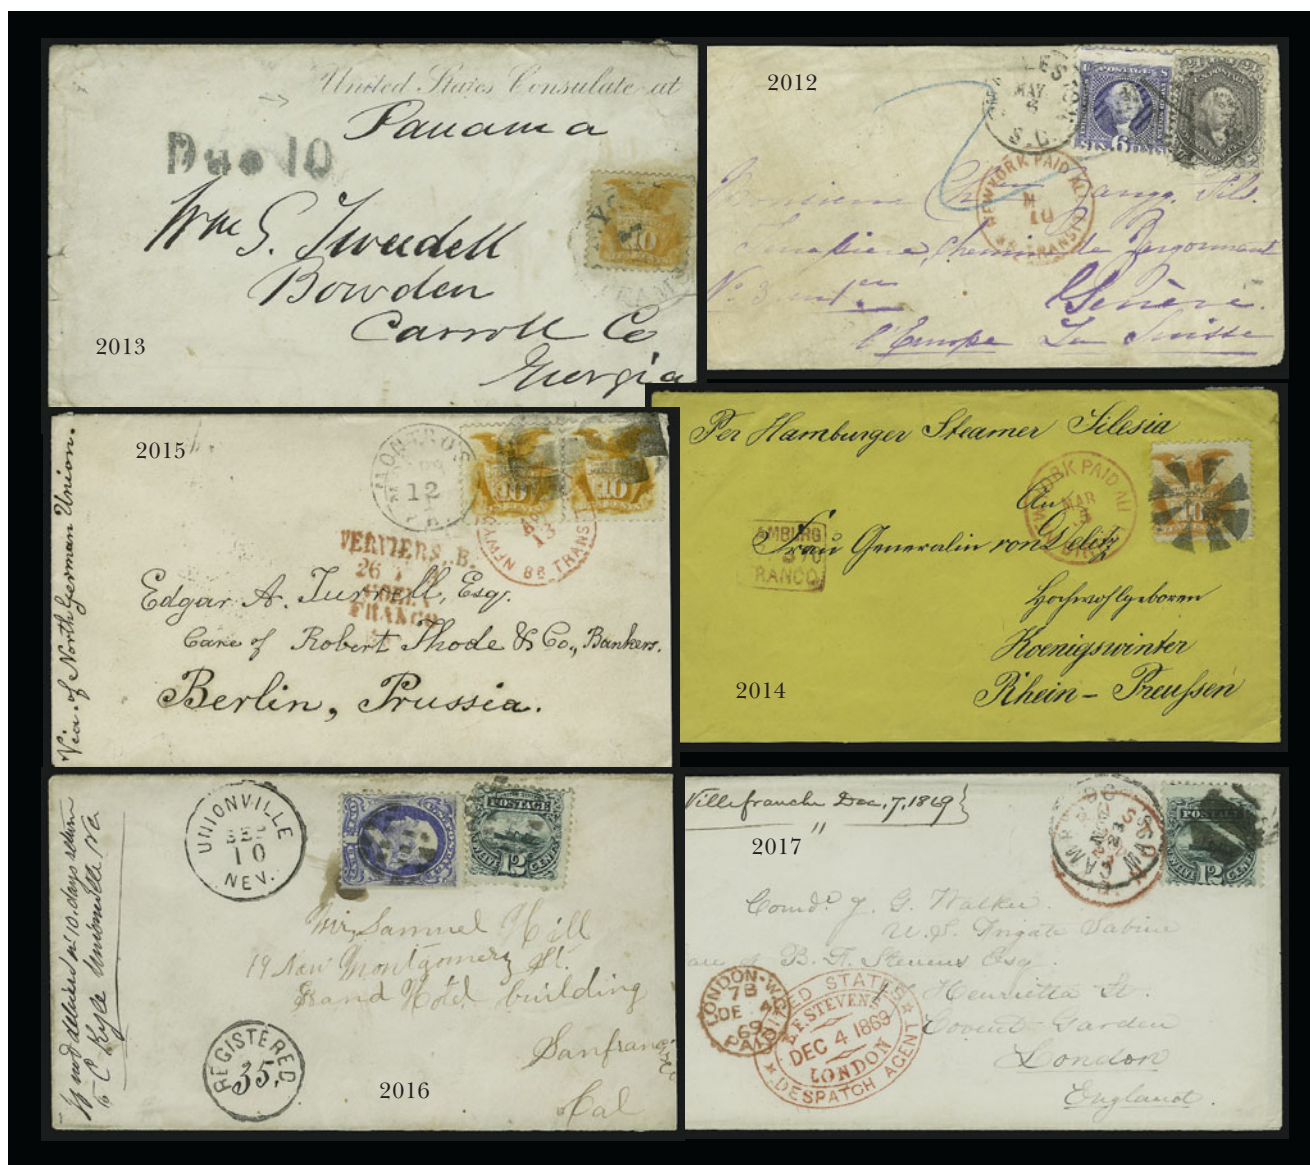 United States Consulate at
Panama
Due 10
Wm S. Tweedell
Bowden
Carroll Co
Georgia
2013
2012
MAY
6
S.C.
NEW YORK PAID ALL
10
TRANSIT
Monsieur
Chemin de
No 3
Genève.
l'Europe La Suisse
2015
Via. of North German Union.
12
NEW YORK BR TRANSIT
13
VERVIERS
26
FRANCO
Edgar A. Turrell, Esq.
Care of Robert Thode & Co., Bankers.
Berlin, Prussia.
10
10
Per Hamburger Steamer Silesia
NEW YORK PAID ALL
MAR
An
HAMBURG
FRANCO.
Frau Generalin von Delitz
Hochwohlgeboren
Koenigswinter
Rhein – Preußen
2014
If not delivered in 10. days return
to C Kyle Unionville Nva
UNIONVILLE
SEP
10
NEV.
POSTAGE
12
Mr, Samuel Hill
19 New Montgomery St.
Grand Hotel building
Sanfrancisco
Cal
REGISTERED
35,
2016
Villefranche Dec, 7, 1869
"
2017
POSTAGE
12
Comdr J. G. Walker.
U.S. Frigate Sabine
Care of B. F. Stevens Esq.
Henrietta St.
Covent Garden
London
England.
LONDON-W
7B
DE 4
69
PAID
UNITED STATES
B.F. STEVENS
DEC 4 1869
LONDON
DESPATCH AGENT